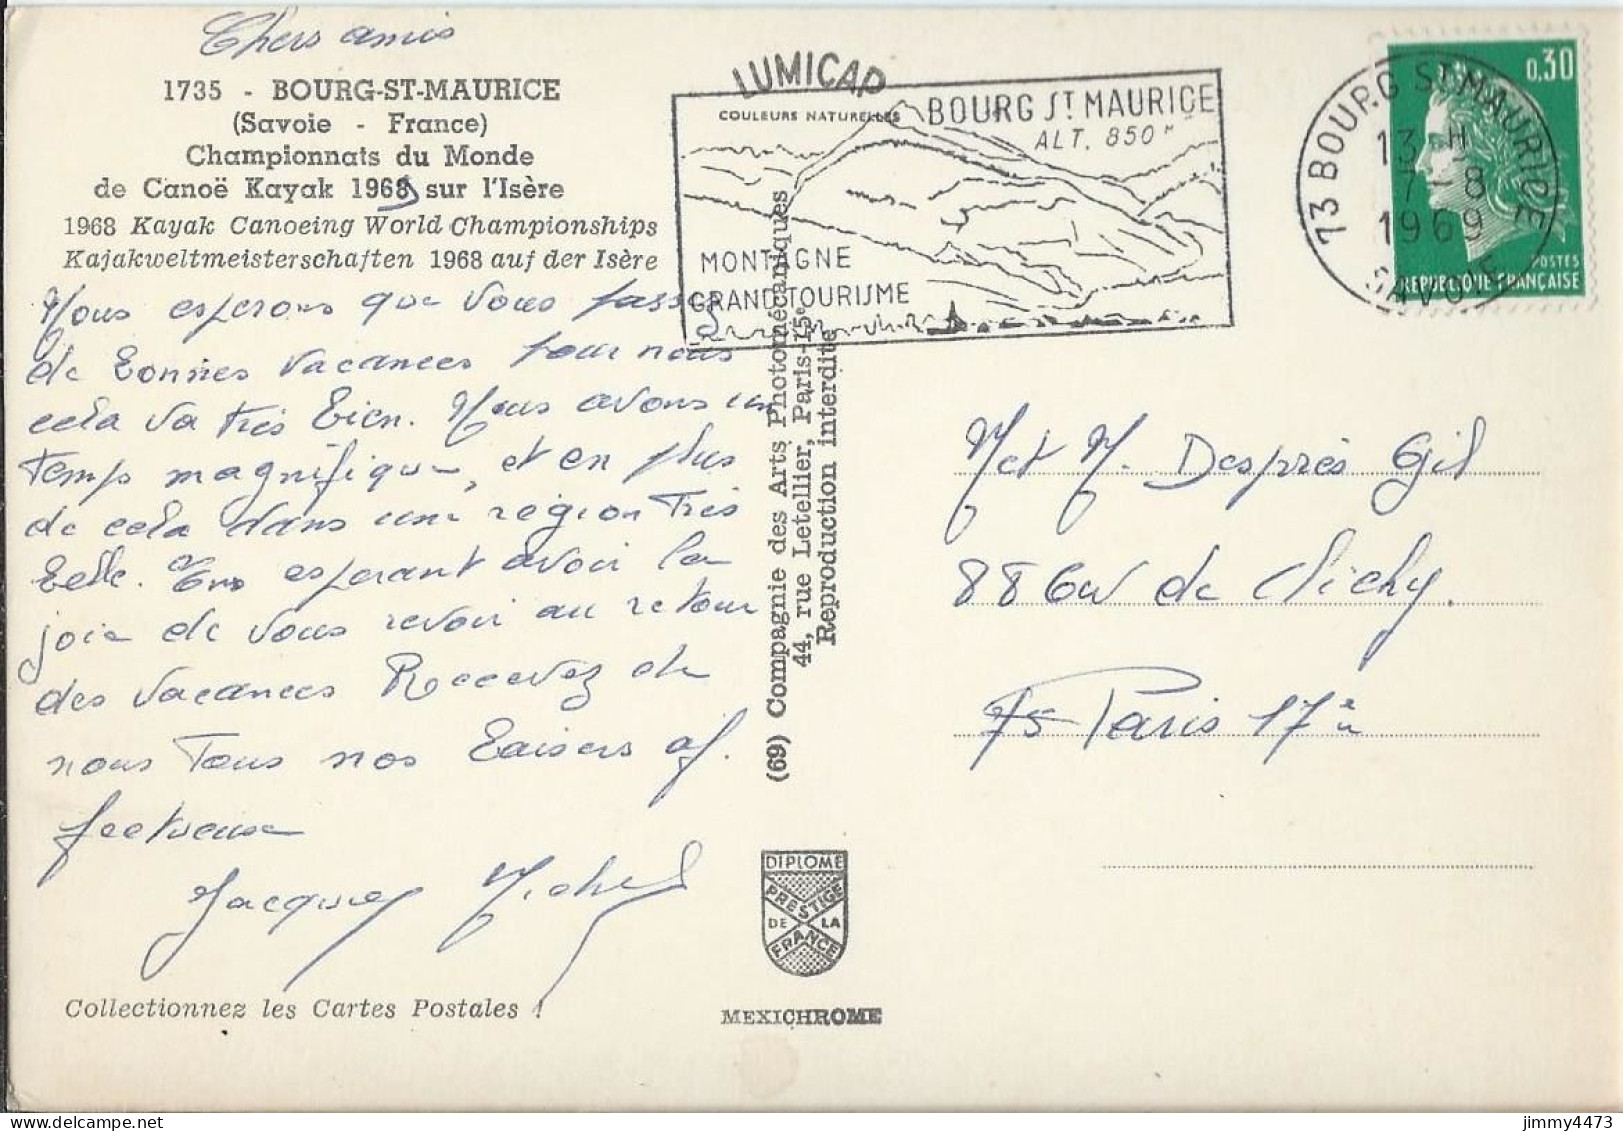 Chers amis
1735 - BOURG-ST-MAURICE
(Savoie - France)
Championnats du Monde
de Canoë Kayak 1968 sur l'Isère
1968 Kayak Canoeing World Championships
Kajakweltmeisterschaften 1968 auf der Isère
Nous esperons que vous passez
de bonnes vacances pour nous
cela va très bien. Nous avons un
temps magnifique, et en plus
de cela dans une région très
belle. En esperant avoir la
joie de vous revoir au retour
des vacances Recevez de
nous tous nos baisers af.
fectueux
Jacques Michel
Collectionnez les Cartes Postales !
LUMICAP
COULEURS NATURELLES
BOURG ST MAURICE
ALT. 850 M
MONTAGNE
GRAND TOURISME
73 BOURG ST MAURICE
13 H
7-8
1969
SAVOIE
0,30
POSTES
REPUBLIQUE FRANÇAISE
(69) Compagnie des Arts Photomécaniques
44, rue Letellier, Paris-15e
Reproduction interdite
DIPLOME
PRESTIGE
DE LA
FRANCE
MEXICHROME
M et M. Desprès Gil
88 de Clichy.
75 Paris 17è
jimmy4473